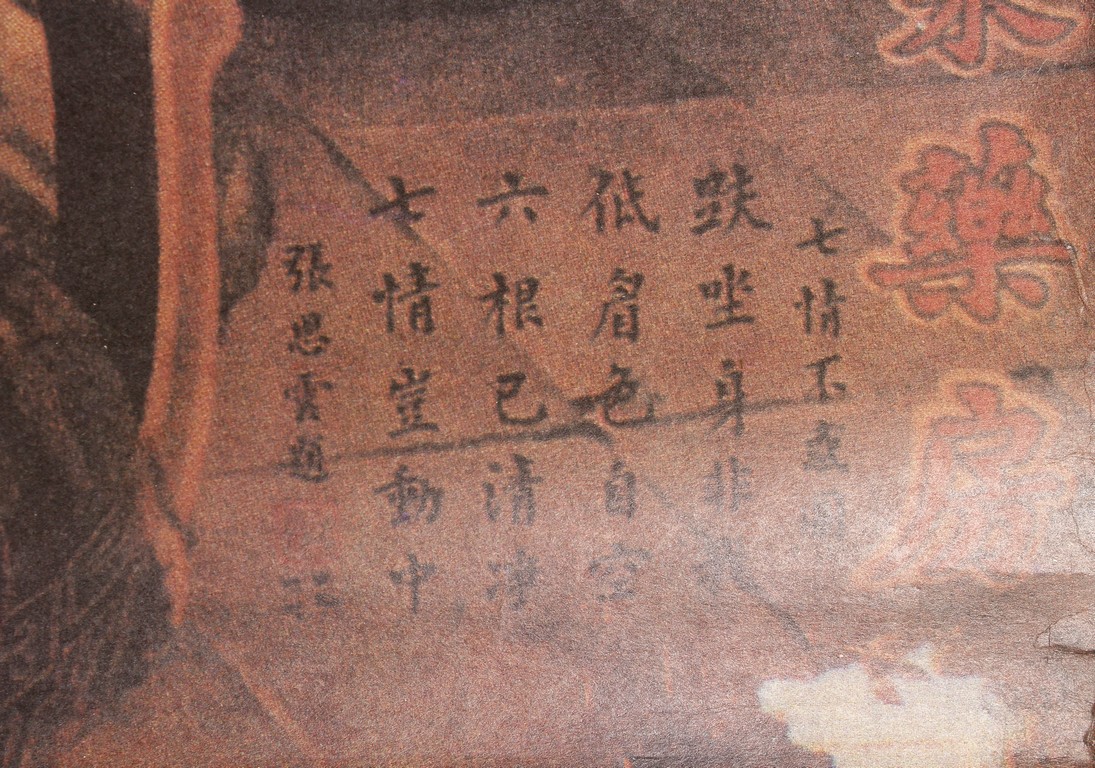 藥房
七情不
趺坐身非
低眉色自空
六根已清淨
七情豈動中
張思雲題